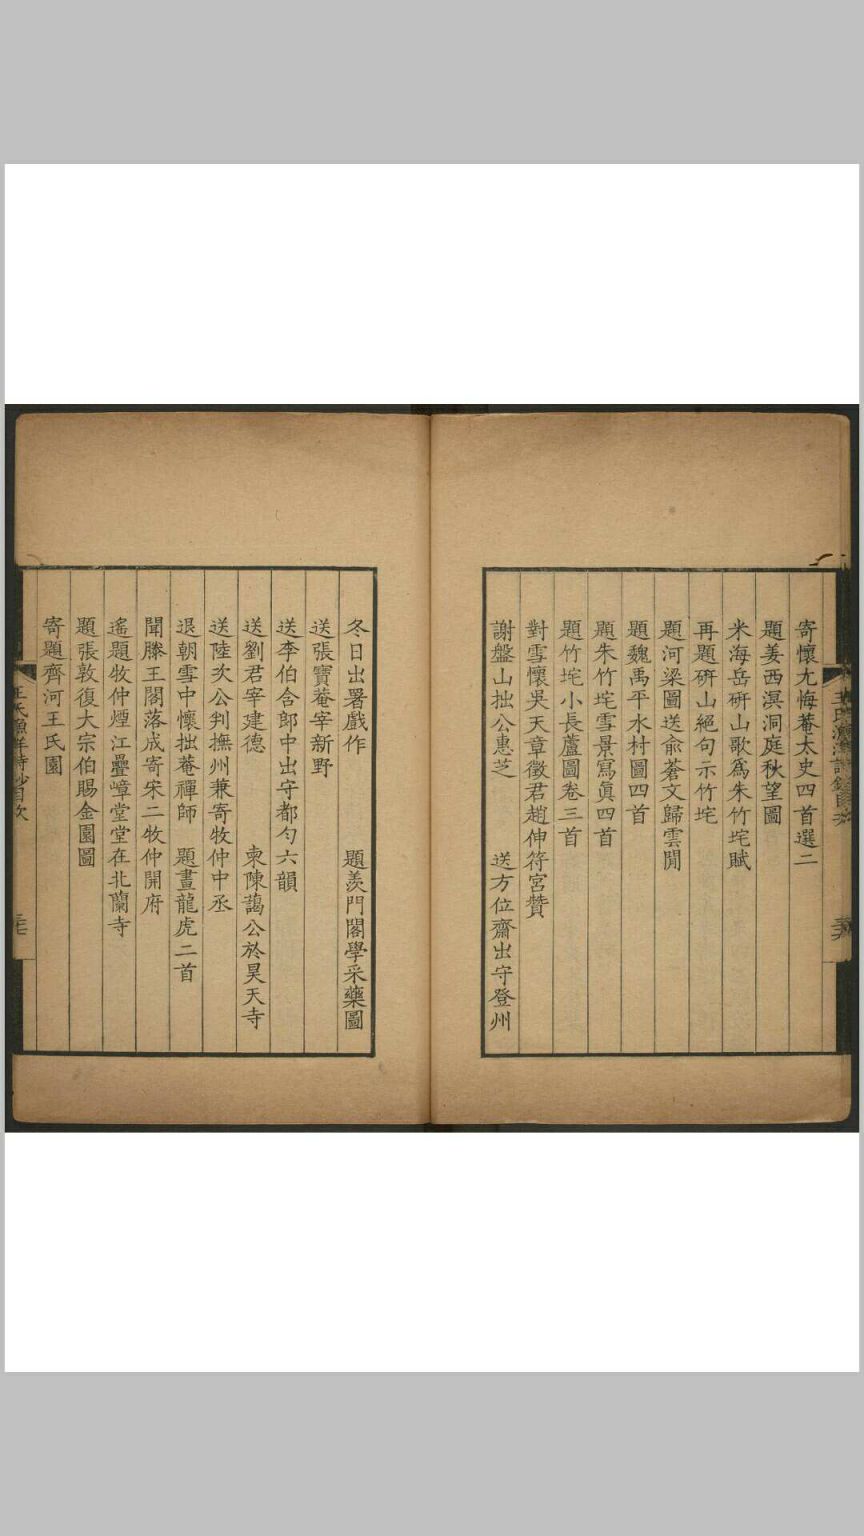 寄懷尤悔菴太史四首選二
題姜西溟洞庭秋望圖
米海岳硏山歌爲朱竹垞賦
再題硏山絕句示竹垞
題河梁圖送俞蒼文歸雲間
題魏禹平水村圖四首
題朱竹垞雪景寫眞四首
題竹垞小長蘆圖卷三首
對雪懷吳天章徵君趙伸符宮贊
謝盤山拙公惠芝　送方位齋出守登州
冬日出署戲作　題羨門閣學采藥圖
送張寶菴宰新野
送李伯含郎中出守都勻六韻
送劉君宰建德　柬陳藹公於昊天寺
送陸次公判撫州兼寄牧仲中丞
退朝雪中懷拙菴禪師　題畫龍虎二首
聞滕王閣落成寄宋二牧仲開府
遙題牧仲煙江疊嶂堂堂在北蘭寺
題張敦復大宗伯賜金園圖
寄題齊河王氏園
王氏漁洋詩鈔目次